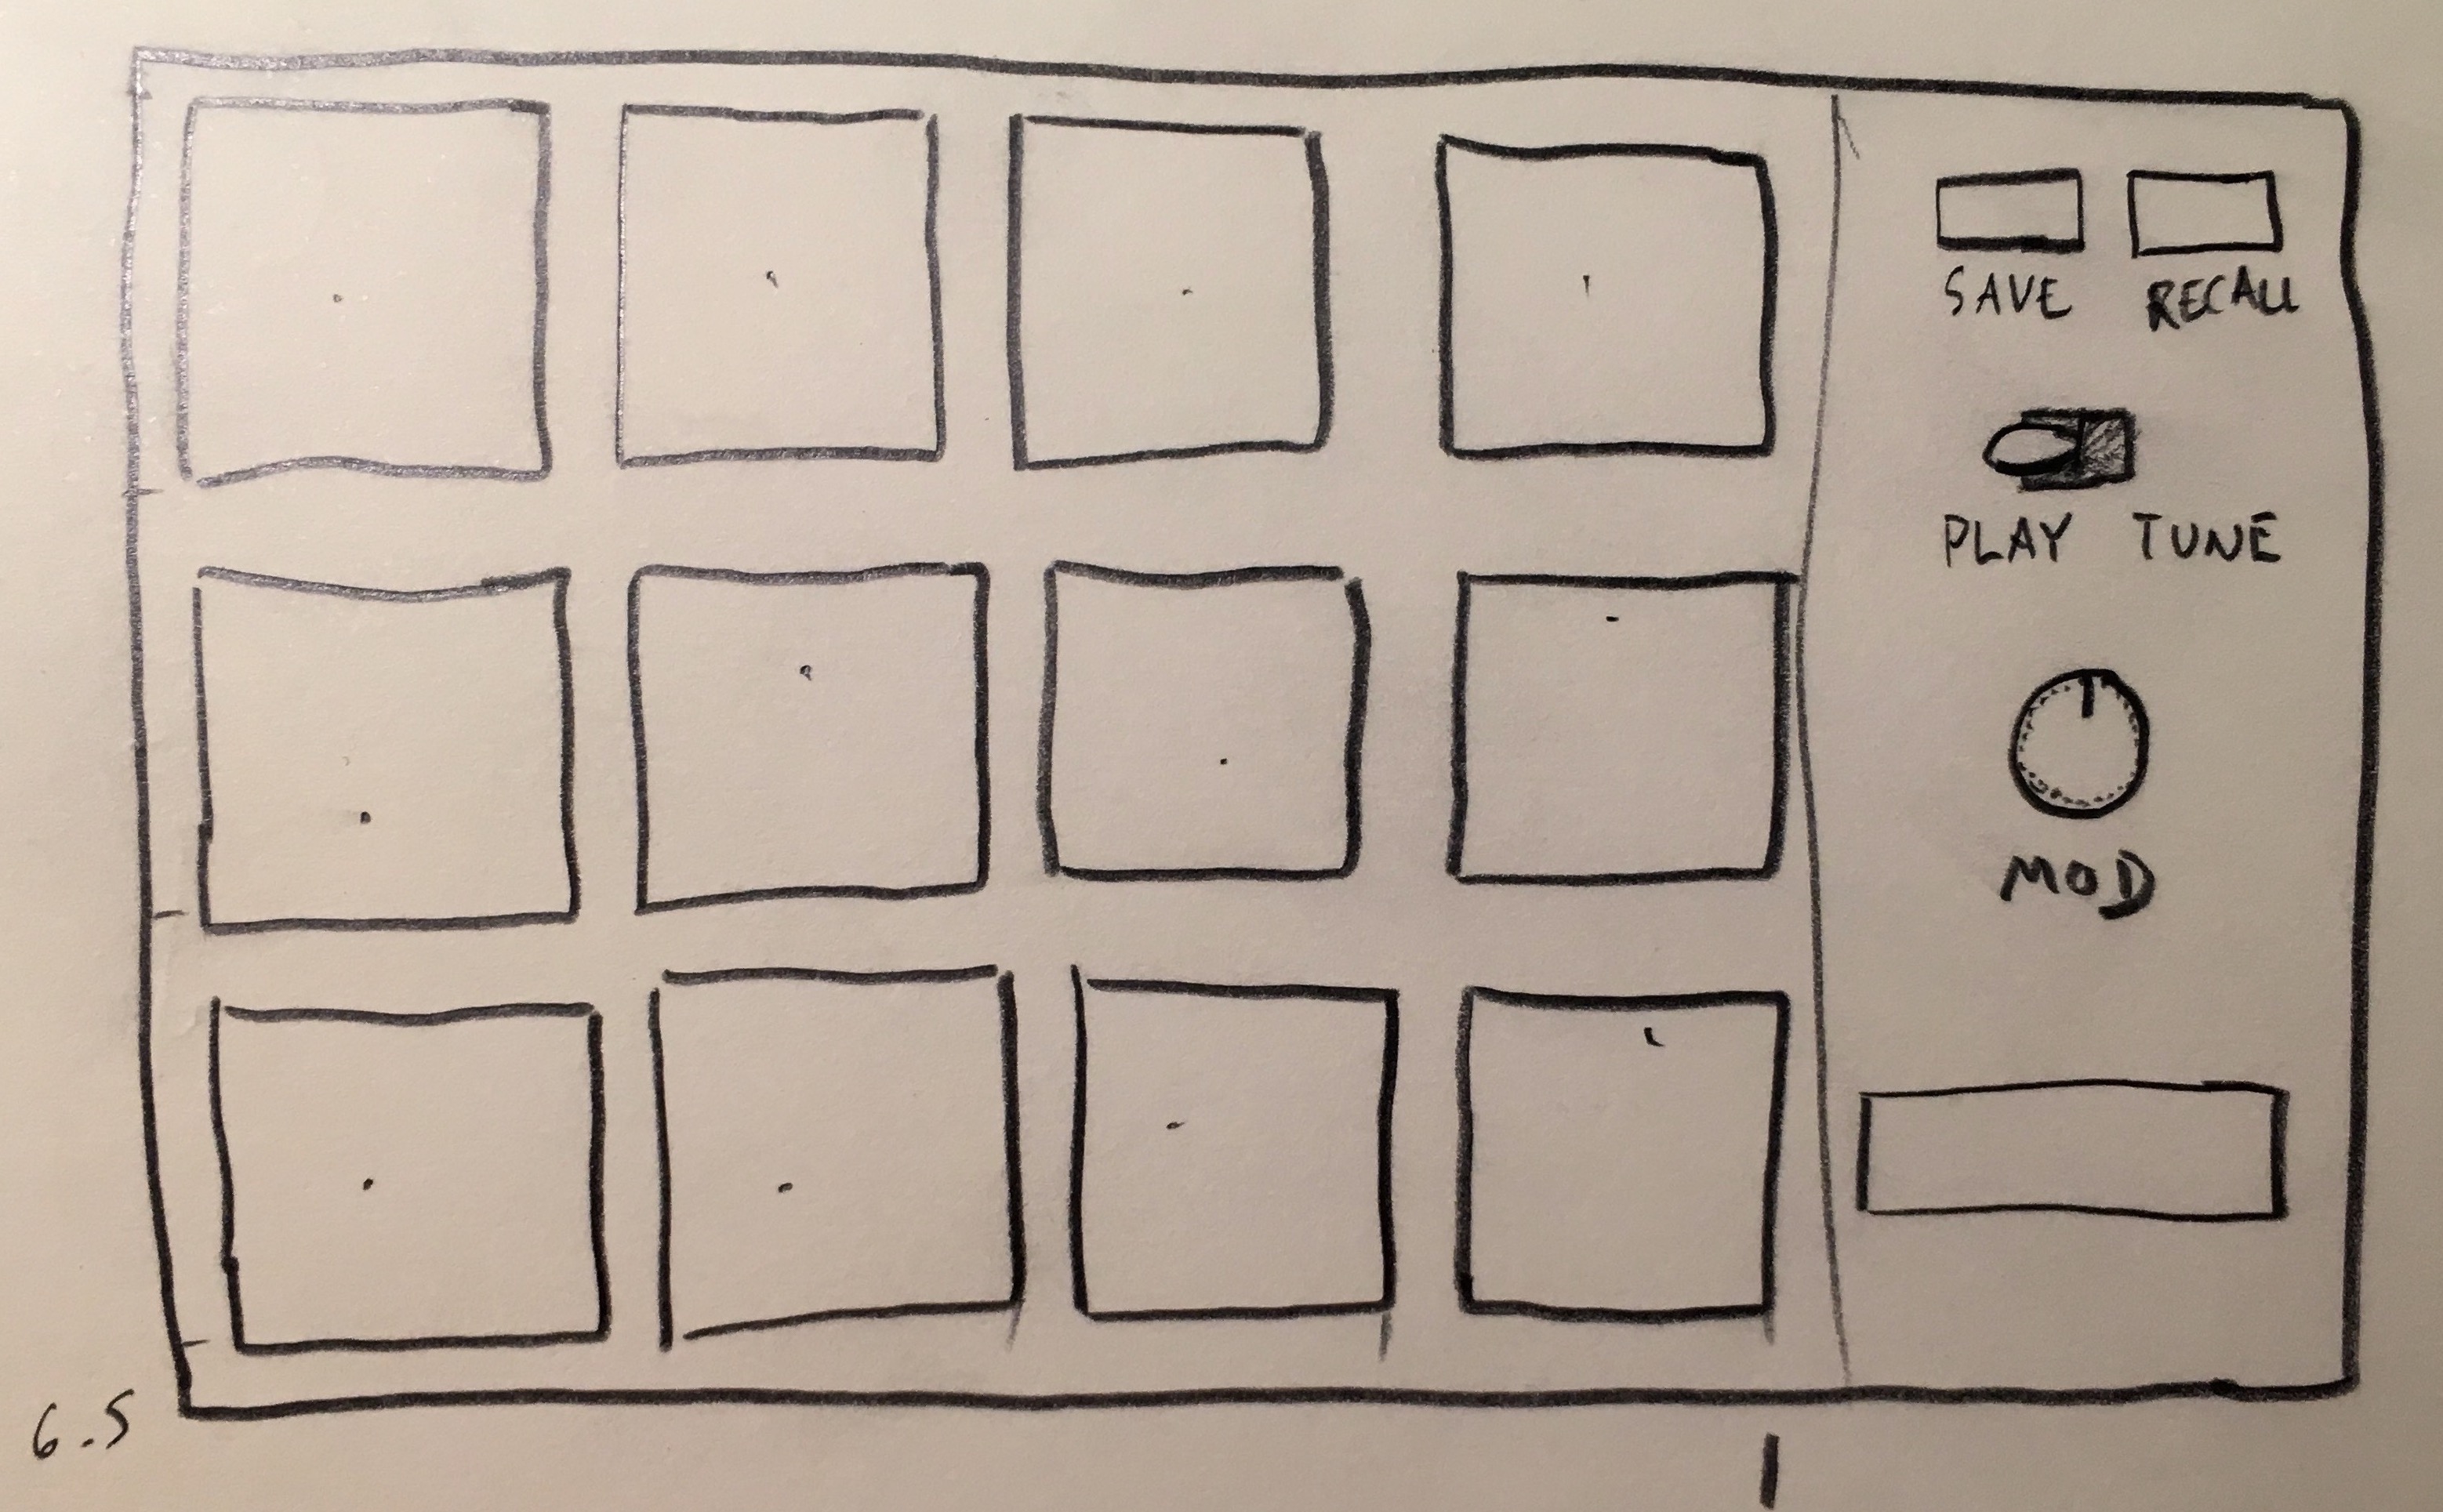 SAVE RECALL
PLAY TUNE
MOD
6.5